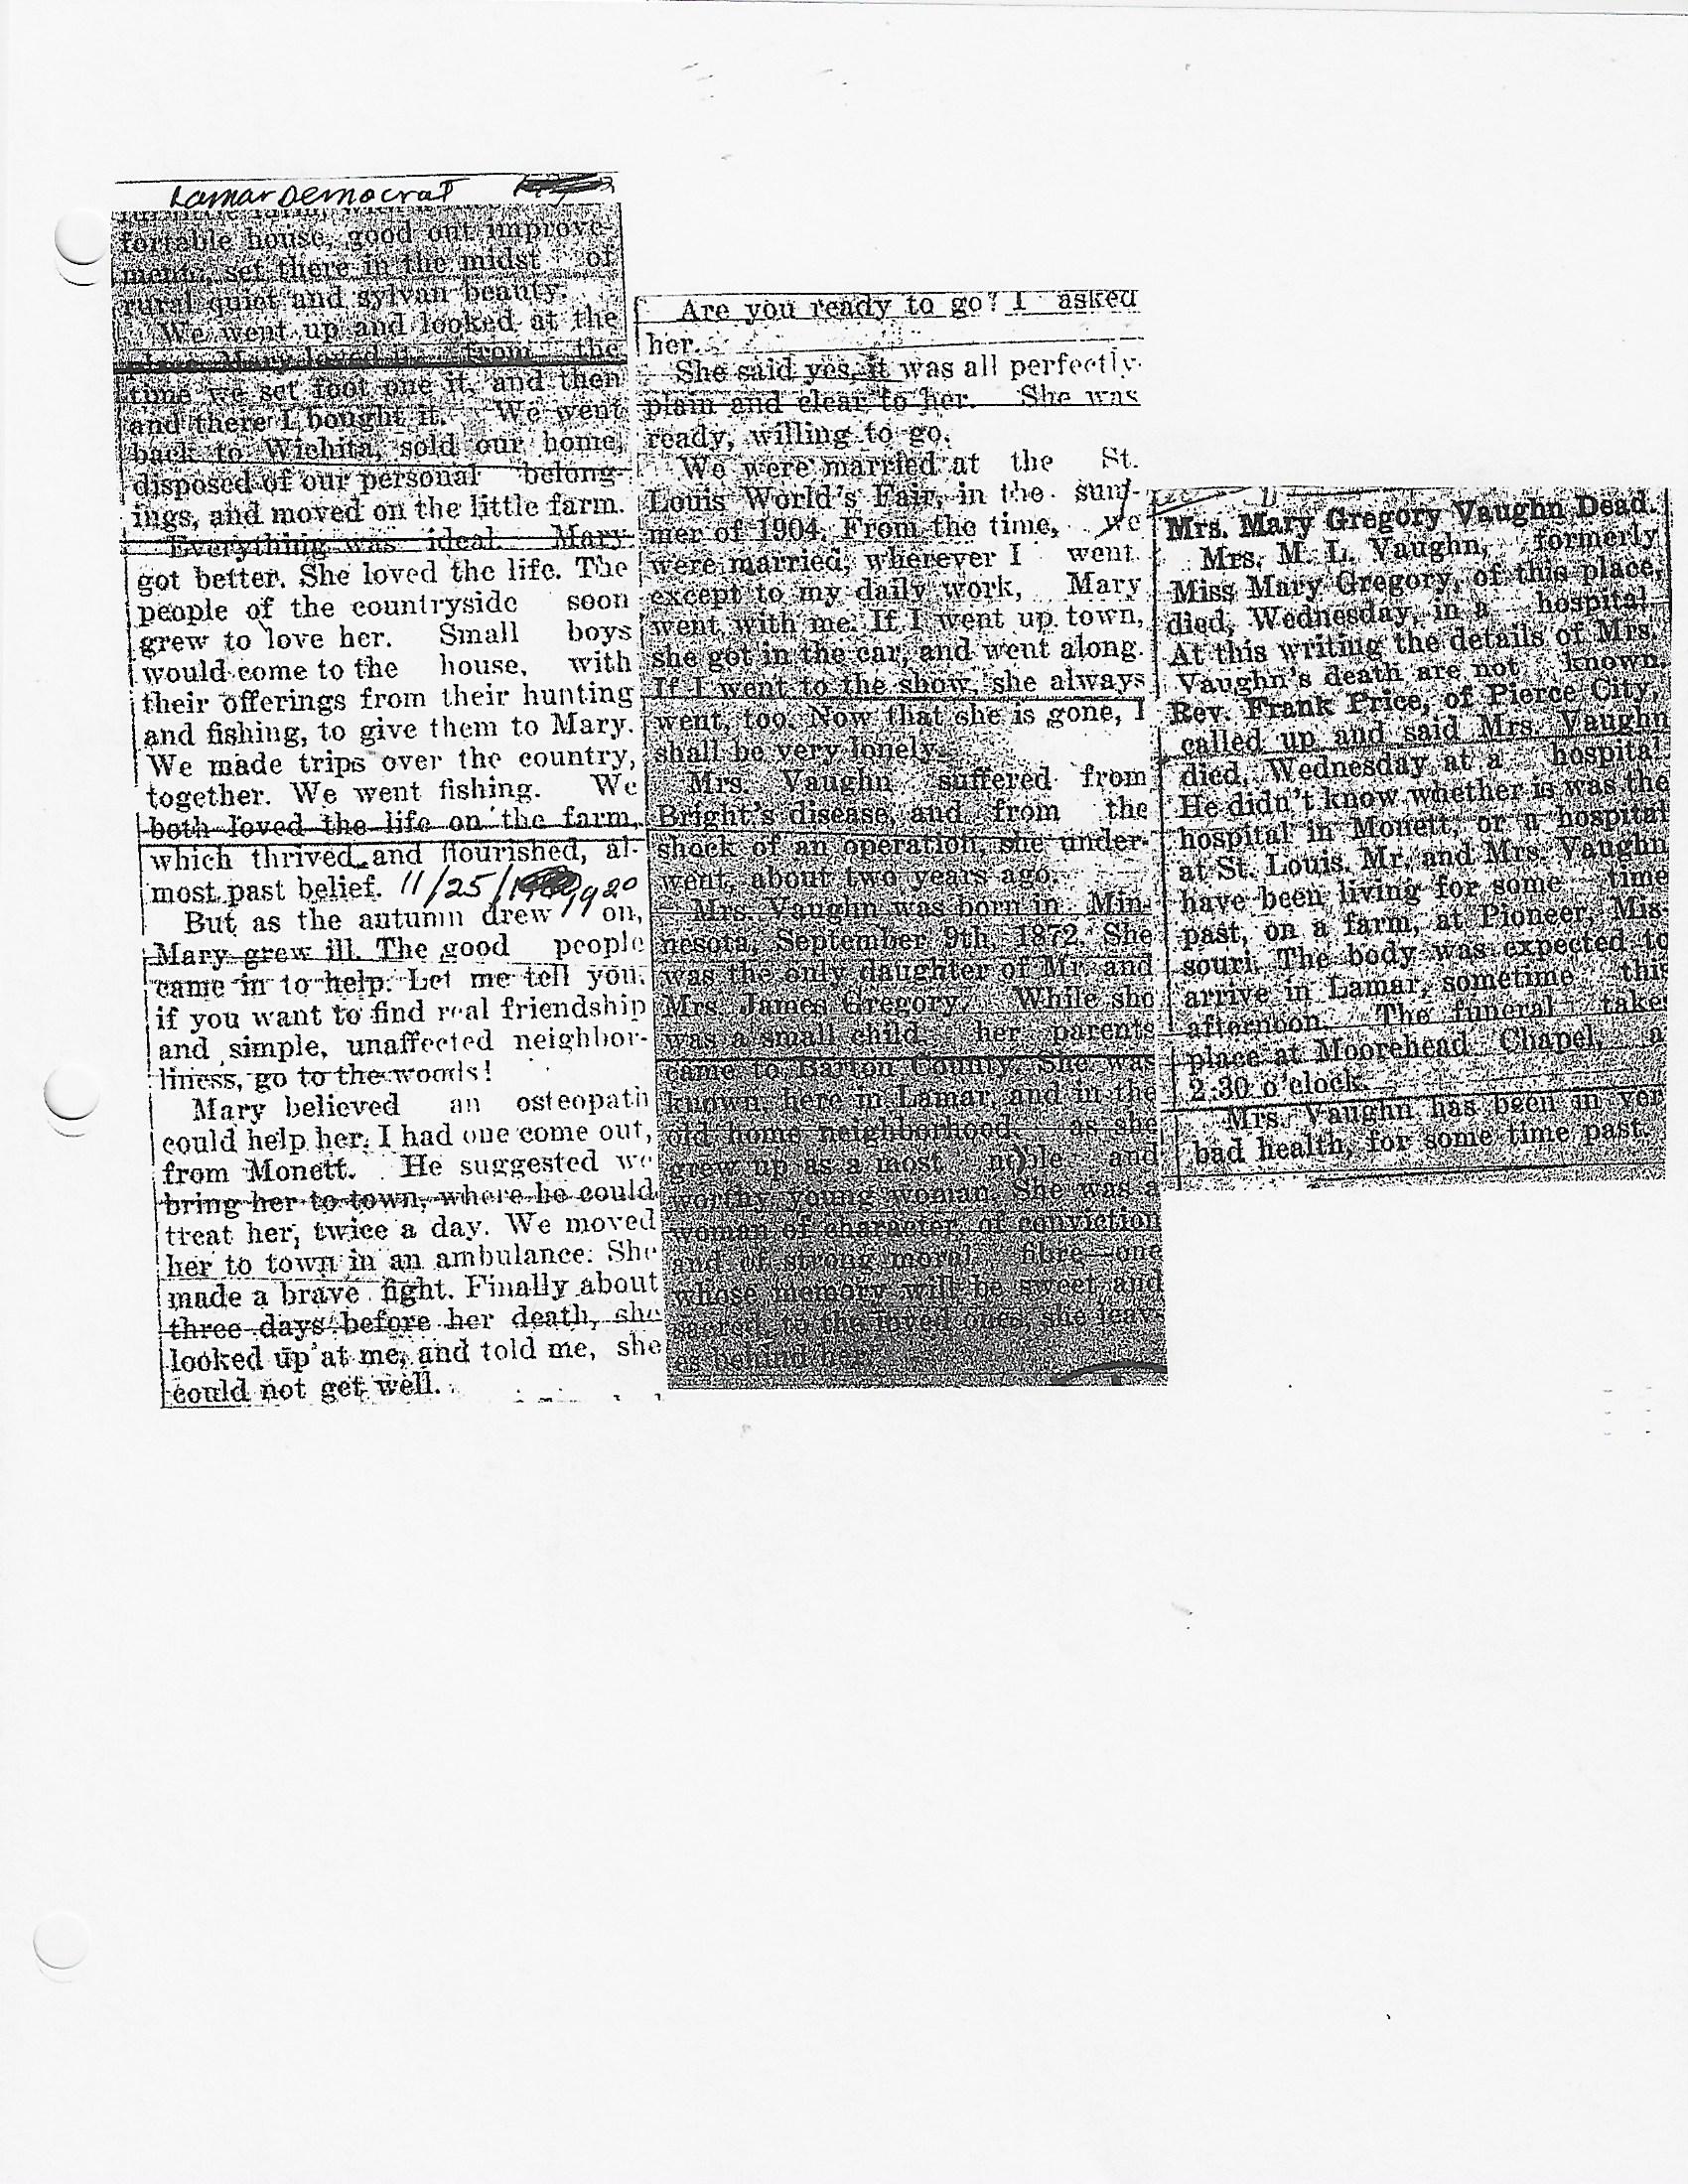 Lamar Democrat
fortable house, good out improve-
ments, set there in the midst of
rural quiet and sylvan beauty.
We went up and looked at the
place. Mary loved it from the
time we set foot one it, and then
and there I bought it. We went
back to Wichita, sold our home,
disposed of our personal belong-
ings, and moved on the little farm.
Everything was ideal. Mary
got better. She loved the life. The
people of the countryside soon
grew to love her. Small boys
would come to the house, with
their offerings from their hunting
and fishing, to give them to Mary.
We made trips over the country,
together. We went fishing. We
both loved the life on the farm,
which thrived and flourished, al-
most past belief. 11/25/1920
But as the autumn drew on,
Mary grew ill. The good people
came in to help. Let me tell you,
if you want to find real friendship
and simple, unaffected neighbor-
liness, go to the woods!
Mary believed an osteopath
could help her. I had one come out,
from Monett. He suggested we
bring her to town, where he could
treat her, twice a day. We moved
her to town in an ambulance. She
made a brave fight. Finally about
three days before her death, she
looked up at me, and told me, she
could not get well.
Are you ready to go? I asked
her.
She said yes, it was all perfectly
plain and clear to her. She was
ready, willing to go.
We were married at the St.
Louis World's Fair, in the sum-
mer of 1904. From the time, we
were married, wherever I went
except to my daily work, Mary
went with me. If I went up town,
she got in the car, and went along.
If I went to the show, she always
went, too. Now that she is gone, I
shall be very lonely.
Mrs. Vaughn suffered from
Bright's disease, and from the
shock of an operation, she under-
went, about two years ago.
Mrs. Vaughn was born in Min-
nesota, September 9th, 1872. She
was the only daughter of Mr. and
Mrs. James Gregory. While she
was a small child her parents
came to Barton County. She was
known, here in Lamar, and in the
old home neighborhood, as she
grew up as a most noble and
worthy young woman. She was a
woman of character, of conviction
and of strong moral fibre—one
whose memory will be sweet and
sacred, to the loved ones, she leav-
es behind her.
Mrs. Mary Gregory Vaughn Dead.
Mrs. M. L. Vaughn, formerly
Miss Mary Gregory, of this place,
died, Wednesday, in a hospital.
At this writing the details of Mrs.
Vaughn's death are not known.
Rev. Frank Price, of Pierce City,
called up and said Mrs. Vaughn
died, Wednesday at a hospital.
He didn't know whether is was the
hospital in Monett, or a hospital
at St. Louis. Mr. and Mrs. Vaughn
have been living for some time
past, on a farm, at Pioneer, Mis-
souri. The body was expected to
arrive in Lamar, sometime this
afternoon. The funeral take
place at Moorehead Chapel, a
2:30 o'clock.
Mrs. Vaughn has been in ver
bad health, for some time past.